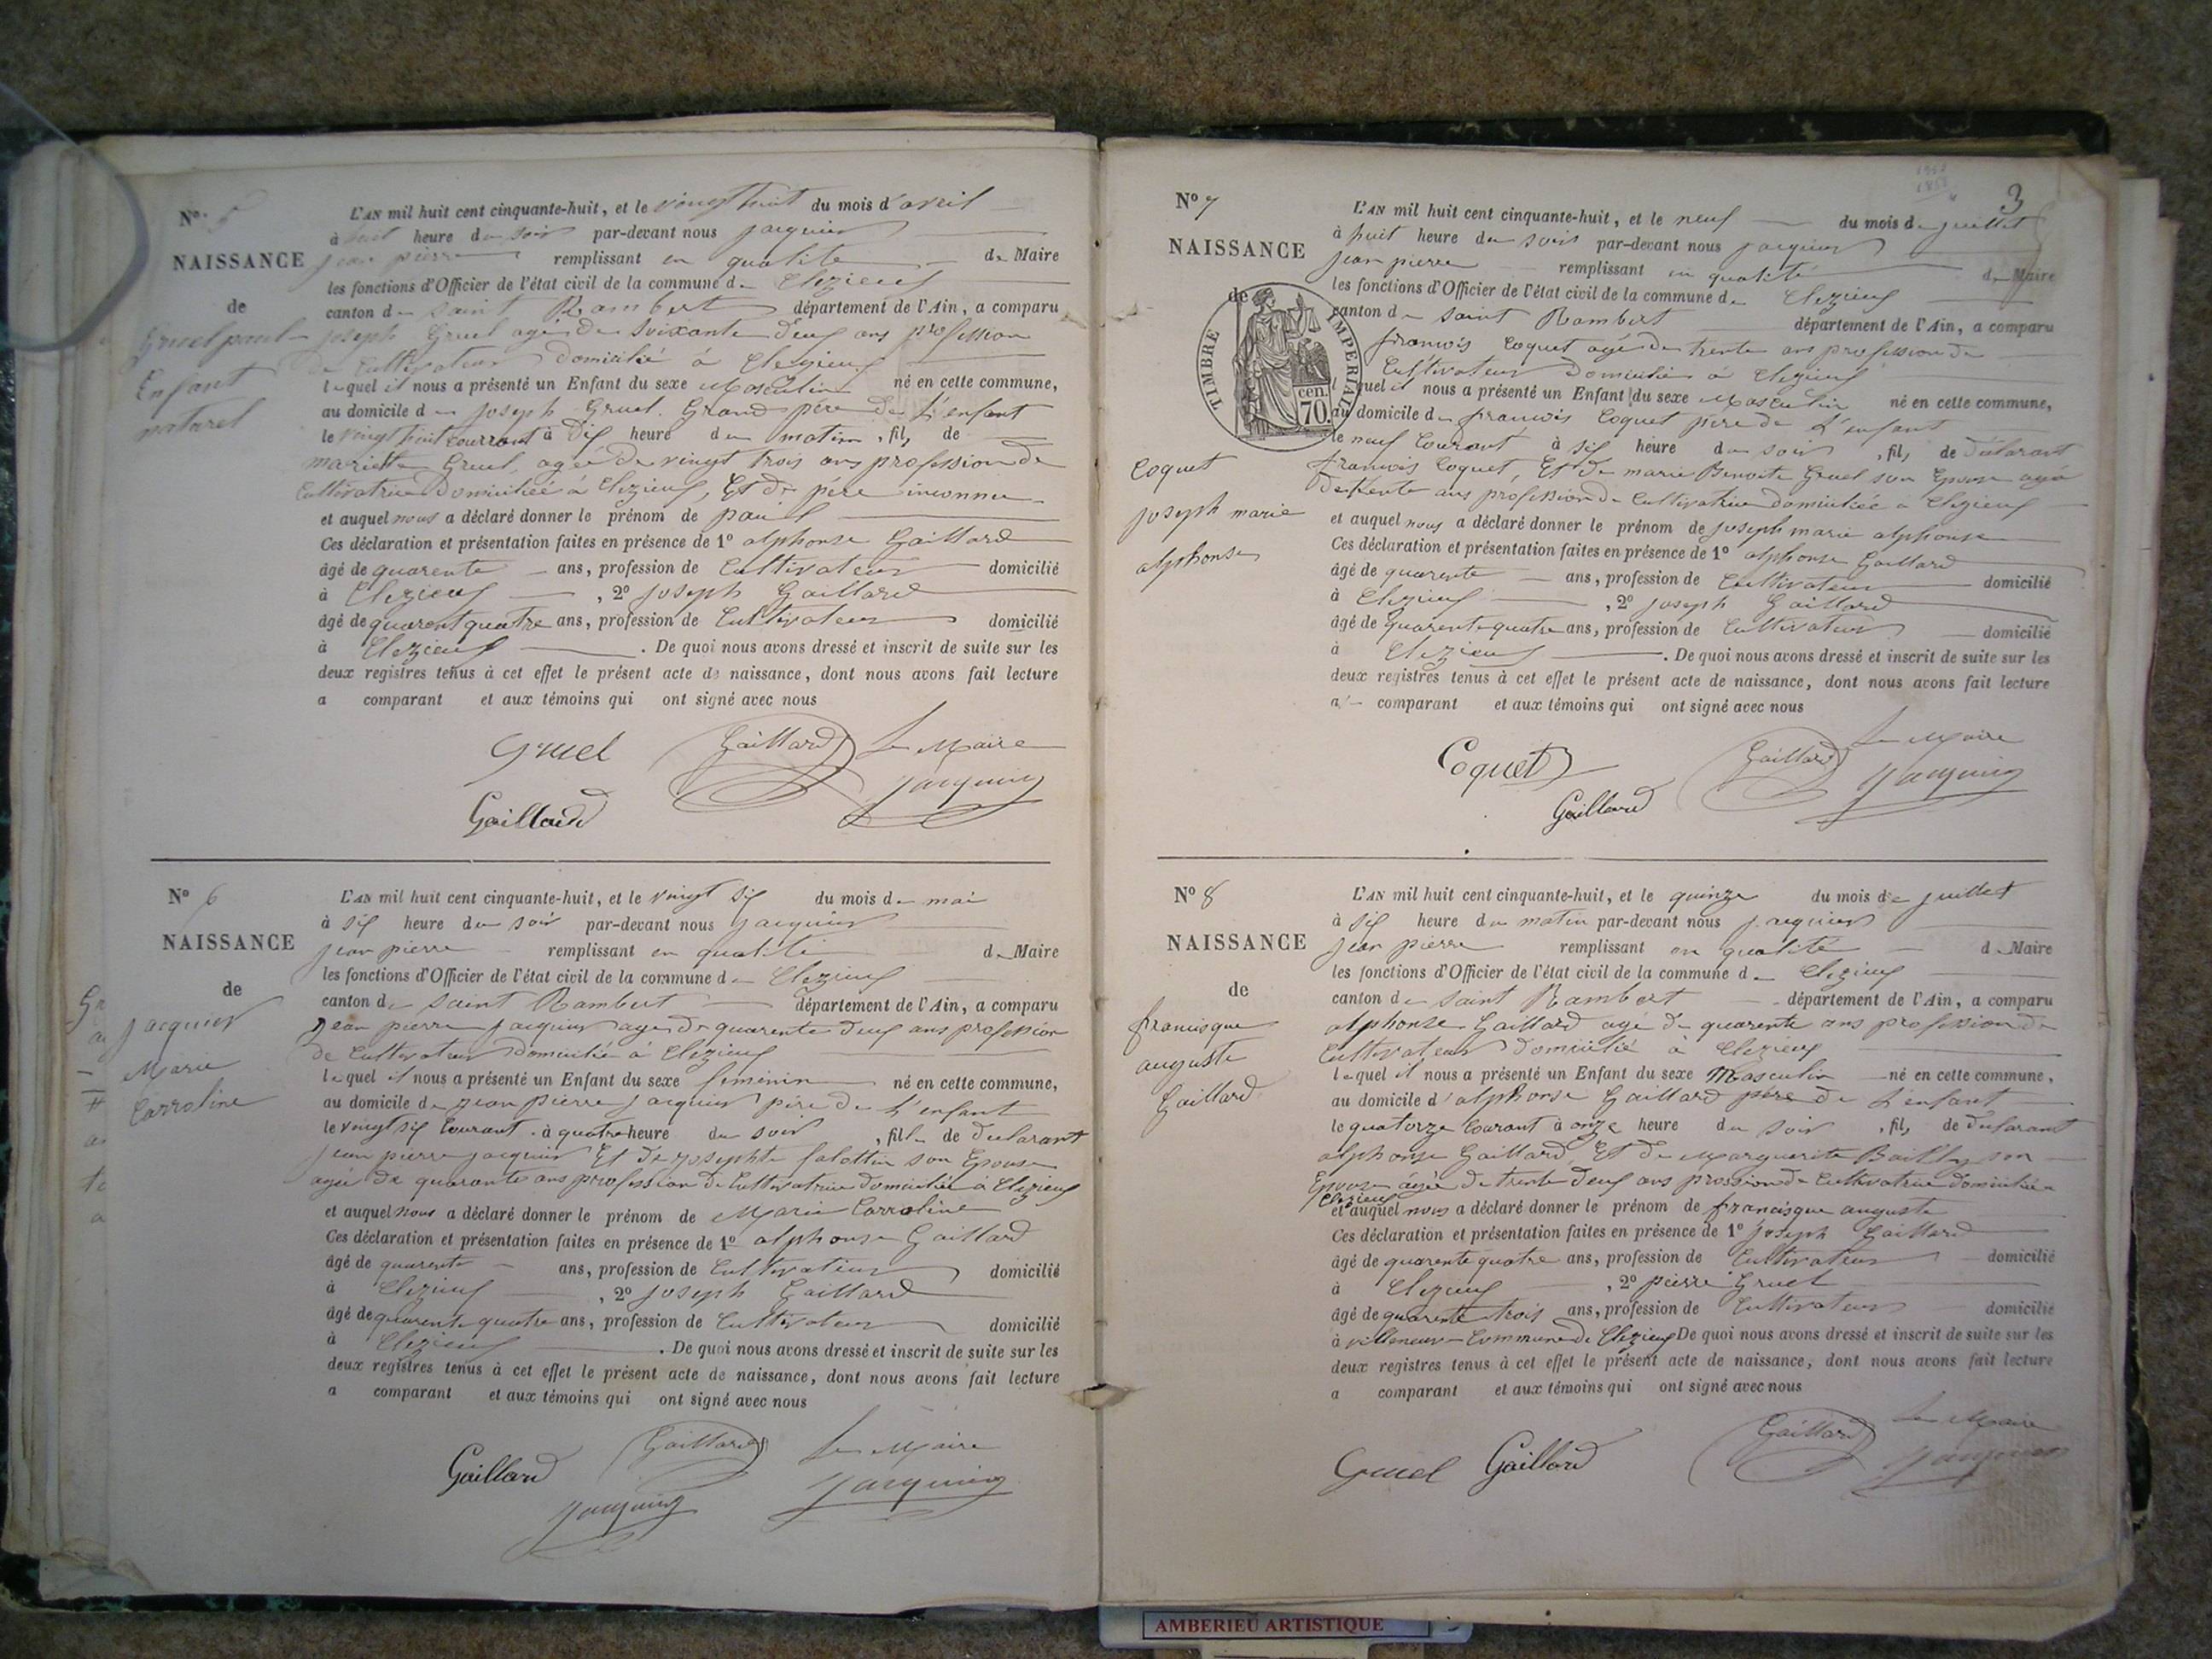 N° 5
NAISSANCE
de
Gruel paul
Enfant
naturel
L'AN mil huit cent cinquante-huit, et le vingt huit du mois d'avril
à huit heure du soir par-devant nous jacquier
jean pierre remplissant en qualité de Maire
les fonctions d'Officier de l'état civil de la commune de Clezieux
canton de saint Rambert département de l'Ain, a comparu
joseph Gruel agé de soixante deux ans profession
de Cultivateur domicilié à Clezieux
lequel il nous a présenté un Enfant du sexe Masculin né en cette commune,
au domicile de joseph Gruel. Grand père de L'enfant
le vingt huit courrant à dix heure du matin, fils de
mariette Gruel, agée de vingt trois ans profession de
Cultivatrice domiciliée à Clezieux, Et de père inconnu
et auquel nous a déclaré donner le prénom de paul
Ces déclaration et présentation faites en présence de 1° alphonse Gaillard
âgé de quarente ans, profession de Cultivateur domicilié
à Clezieux, 2° joseph Gaillard
âgé de quarent quatre ans, profession de Cultivateur domicilié
à Clezieux. De quoi nous avons dressé et inscrit de suite sur les
deux registres tenus à cet effet le présent acte de naissance, dont nous avons fait lecture
a comparant et aux témoins qui ont signé avec nous
Gruel Gaillard Le Maire
Gaillard Jacquier
N° 6
NAISSANCE
de
jacquier
Marie
Carroline
L'AN mil huit cent cinquante-huit, et le vingt six du mois de mai
à six heure du soir par-devant nous jacquier
jean pierre remplissant en qualité de Maire
les fonctions d'Officier de l'état civil de la commune de Clezieux
canton de saint Rambert département de l'Ain, a comparu
Jean pierre jacquier agé de quarente deux ans profession
de Cultivateur domicilié à Clezieux
lequel il nous a présenté un Enfant du sexe feminin né en cette commune,
au domicile de jean pierre jacquier père de L'enfant
le vingt six Courant à quatre heure du soir, fille de declarant
jean pierre jacquier Et de josephte son Epouse
agée de quarante ans profession de Cultivatrice domiciliée à Clezieux
et auquel nous a déclaré donner le prénom de Marie Carroline
Ces déclaration et présentation faites en présence de 1° alphonse Gaillard
âgé de quarente ans, profession de Cultivateur domicilié
à Clezieux, 2° joseph Gaillard
âgé de quarente quatre ans, profession de Cultivateur domicilié
à Clezieux. De quoi nous avons dressé et inscrit de suite sur les
deux registres tenus à cet effet le présent acte de naissance, dont nous avons fait lecture
a comparant et aux témoins qui ont signé avec nous
Gaillard Gaillard Le Maire
Jacquier Jacquier
3
N° 7
NAISSANCE
de
TIMBRE IMPERIAL
70 cen.
Coquet
joseph marie
alphonse
L'AN mil huit cent cinquante-huit, et le neuf du mois de juillet
à huit heure du soir par-devant nous jacquier
jean pierre remplissant en qualité de Maire
les fonctions d'Officier de l'état civil de la commune de Clezieux
canton de saint Rambert département de l'Ain, a comparu
francois Coquet agé de trente ans profession de
Cultivateur Domicilié à Clezieux
lequel il nous a présenté un Enfant du sexe Masculin né en cette commune,
au domicile de francois Coquet père de L'enfant
le neuf Courant à six heure du soir, fils de déclarant
francois Coquet, Et de marie Benoite Gruel son Epouse agée
de trente ans profession de Cultivatrice domiciliée à Clezieux
et auquel nous a déclaré donner le prénom de joseph marie alphonse
Ces déclaration et présentation faites en présence de 1° alphonse Gaillard
âgé de quarente ans, profession de Cultivateur domicilié
à Clezieux, 2° joseph Gaillard
âgé de quarente quatre ans, profession de Cultivateur domicilié
à Clezieux. De quoi nous avons dressé et inscrit de suite sur les
deux registres tenus à cet effet le présent acte de naissance, dont nous avons fait lecture
a comparant et aux témoins qui ont signé avec nous
Coquet Gaillard Le Maire
Gaillard Jacquier
N° 8
NAISSANCE
de
francisque
auguste
Gaillard
L'AN mil huit cent cinquante-huit, et le quinze du mois de juillet
à six heure du matin par-devant nous jacquier
jean pierre remplissant en qualité de Maire
les fonctions d'Officier de l'état civil de la commune de Clezieux
canton de saint Rambert département de l'Ain, a comparu
alphonse Gaillard agé de quarente ans profession de
Cultivateur Domicilié à Clezieux
lequel il nous a présenté un Enfant du sexe Masculin né en cette commune,
au domicile d'alphonse Gaillard père de L'enfant
le quatorze Courant à onze heure du soir, fils de déclarant
alphonse Gaillard, Et de Marguerite Bailly son
Epouse agée de trente deux ans profession de Cultivatrice domiciliée a
Clezieux
et auquel nous a déclaré donner le prénom de francisque auguste
Ces déclaration et présentation faites en présence de 1° joseph Gaillard
âgé de quarente quatre ans, profession de Cultivateur domicilié
à Clezieux, 2° pierre Gruel
âgé de quarente trois ans, profession de Cultivateur domicilié
à villeneuve Commune de Clezieux De quoi nous avons dressé et inscrit de suite sur les
deux registres tenus à cet effet le présent acte de naissance, dont nous avons fait lecture
a comparant et aux témoins qui ont signé avec nous
Gruel Gaillard Gaillard Le Maire
Jacquier
AMBERIEU ARTISTIQUE